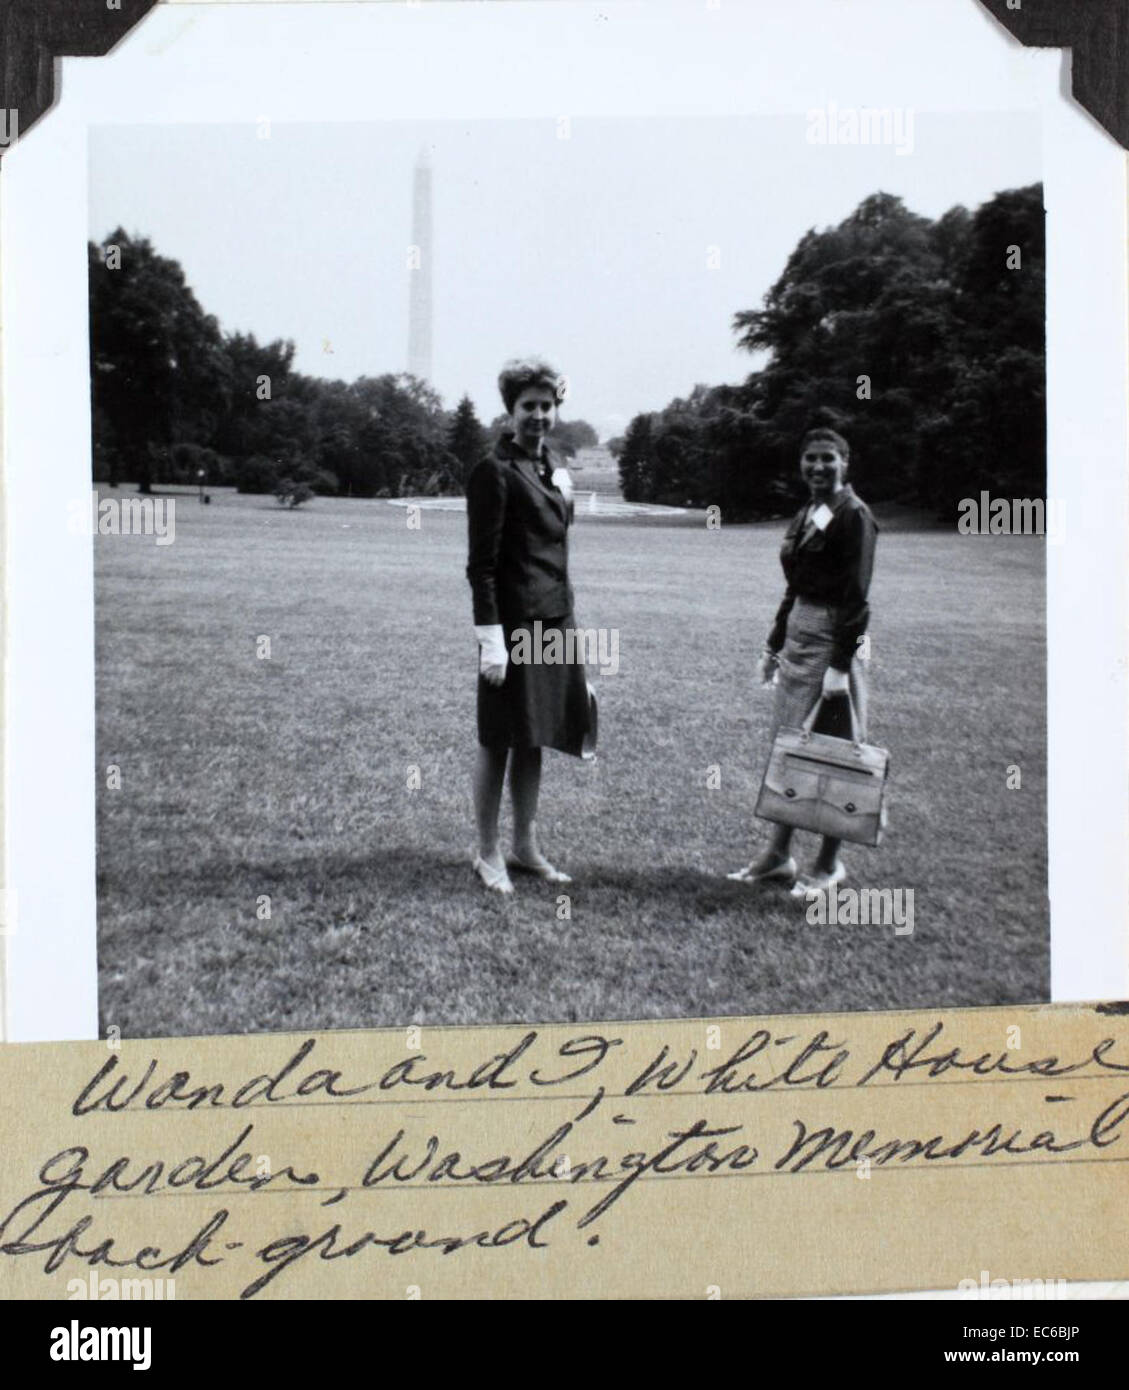 alamy
a
a
a
a
a
alamy
alamy
a
a
a
a
a
a
a
alamy
a
a
Wanda and I, White House
garden, Washington Memorial
back-ground.
alamy
alamy
alamy
Image ID: EC6BJP
www.alamy.com